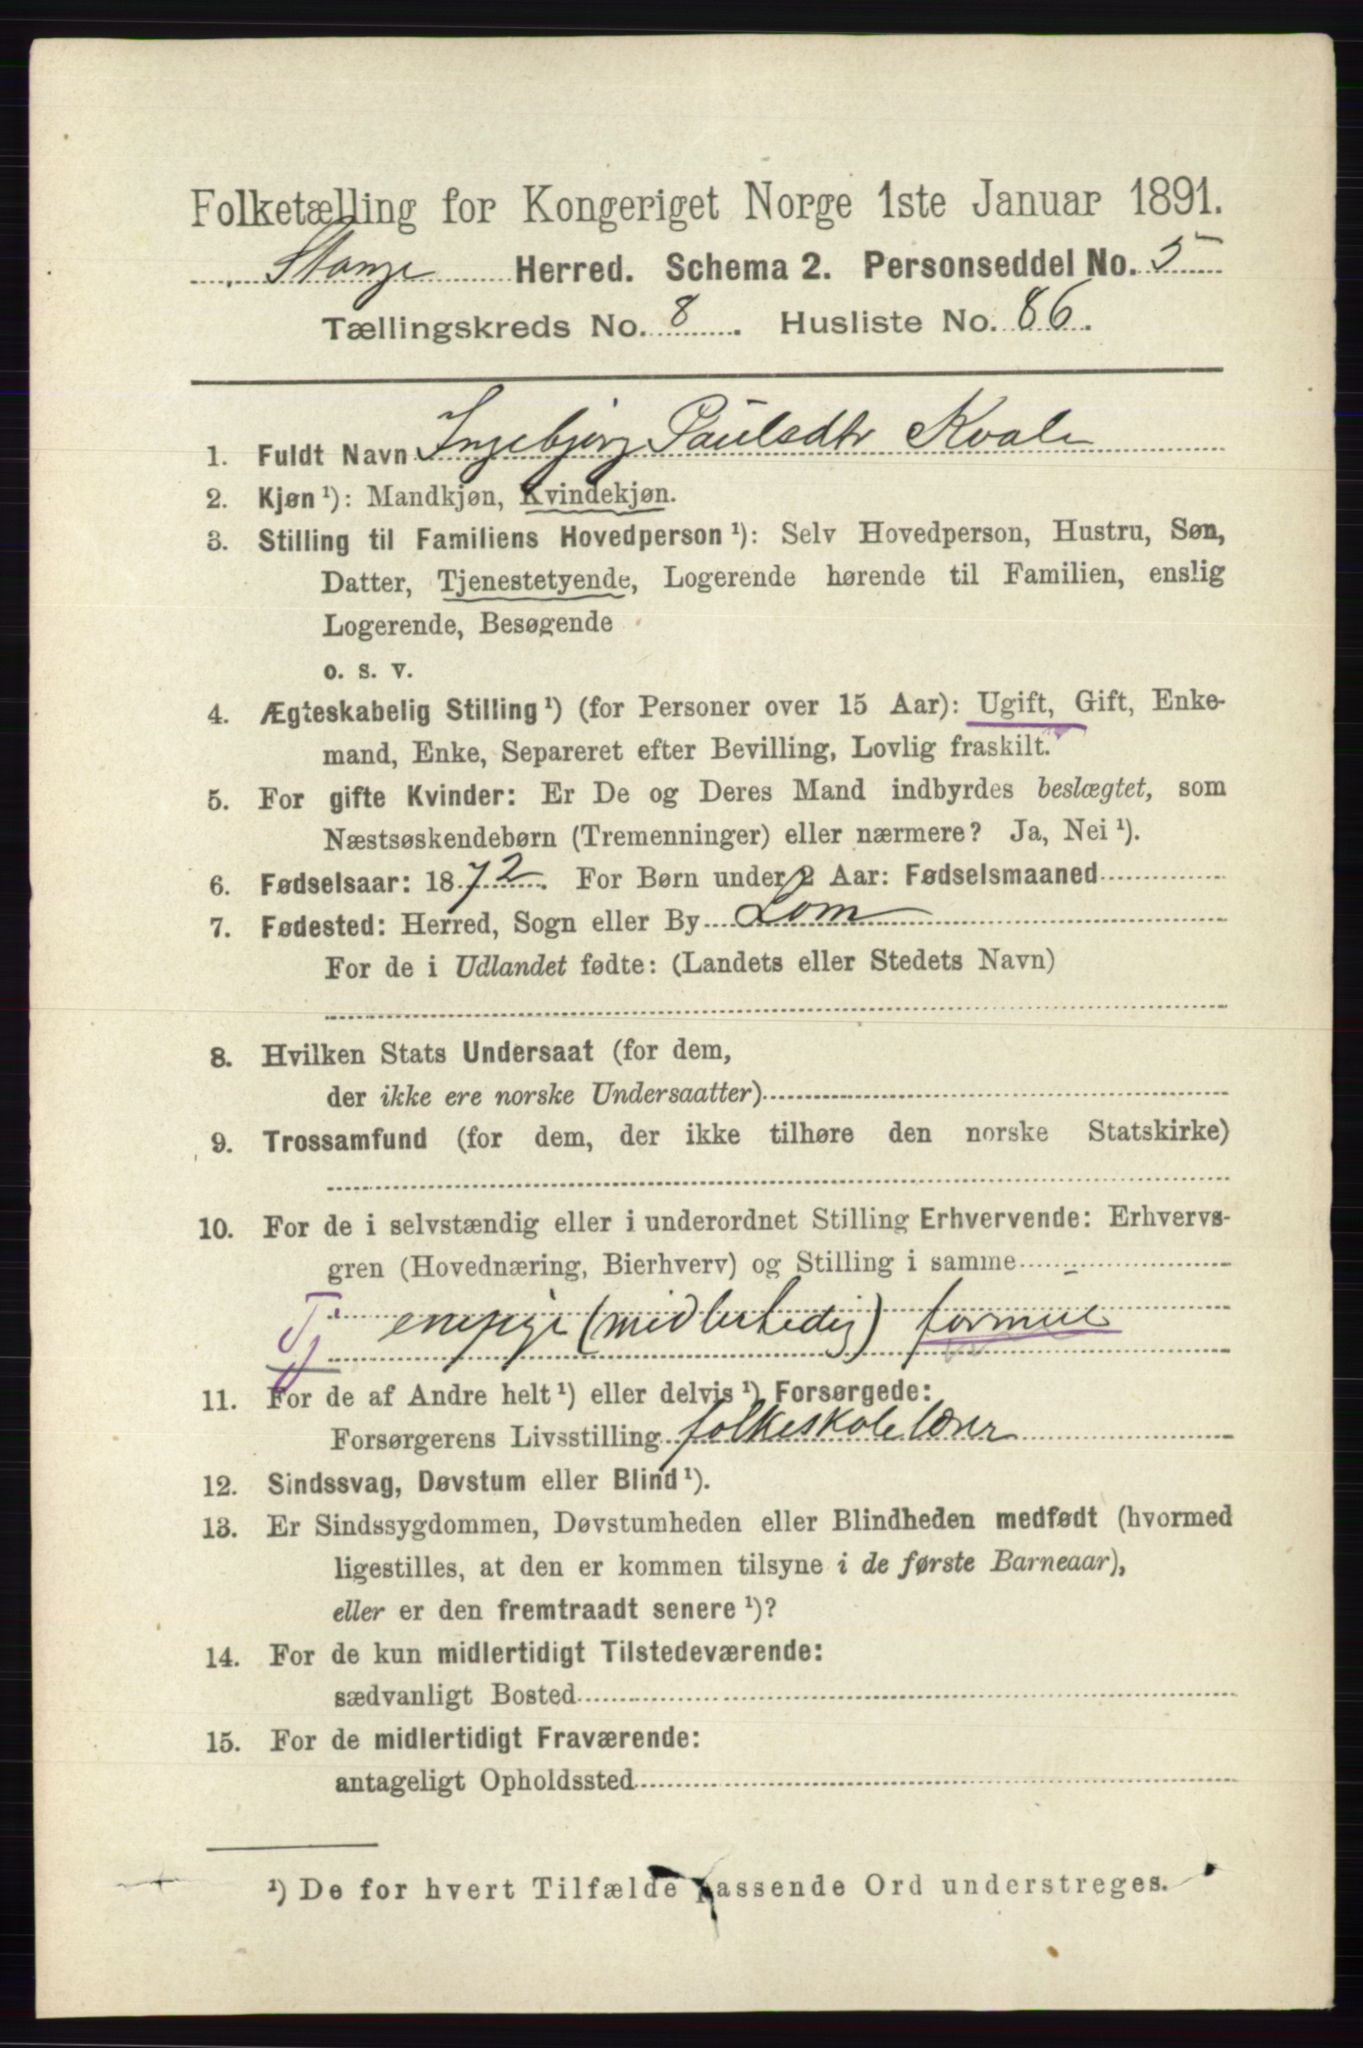 Folketælling for Kongeriget Norge 1ste Januar 1891.
Stange Herred. Schema 2. Personseddel No. 5
Tællingskreds No. 8. Husliste No. 86.
1. Fuldt Navn Ingebjørg Paulsdtr Kvale
2. Kjøn ¹): Mandkjøn, Kvindekjøn.
3. Stilling til Familiens Hovedperson ¹): Selv Hovedperson, Hustru, Søn,
Datter, Tjenestetyende, Logerende hørende til Familien, enslig
Logerende, Besøgende
o. s. v.
4. Ægteskabelig Stilling ¹) (for Personer over 15 Aar): Ugift, Gift, Enke-
mand, Enke, Separeret efter Bevilling, Lovlig fraskilt.
5. For gifte Kvinder: Er De og Deres Mand indbyrdes beslægtet, som
Næstsøskendebørn (Tremenninger) eller nærmere? Ja, Nei ¹).
6. Fødselsaar: 1872. For Børn under 2 Aar: Fødselsmaaned
7. Fødested: Herred, Sogn eller By Lom
For de i Udlandet fødte: (Landets eller Stedets Navn)
8. Hvilken Stats Undersaat (for dem,
der ikke ere norske Undersaatter)
9. Trossamfund (for dem, der ikke tilhøre den norske Statskirke)
10. For de i selvstændig eller i underordnet Stilling Erhvervende: Erhvervs-
gren (Hovednæring, Bierhverv) og Stilling i samme
Tj
11. For de af Andre helt ¹) eller delvis ¹) Forsørgede:
Forsørgerens Livsstilling folkeskolelærer
12. Sindssvag, Døvstum eller Blind ¹).
13. Er Sindssygdommen, Døvstumheden eller Blindheden medfødt (hvormed
ligestilles, at den er kommen tilsyne i de første Barneaar),
eller er den fremtraadt senere ¹)?
14. For de kun midlertidigt Tilstedeværende:
sædvanligt Bosted
15. For de midlertidigt Fraværende:
antageligt Opholdssted
¹) De for hvert Tilfælde passende Ord understreges.